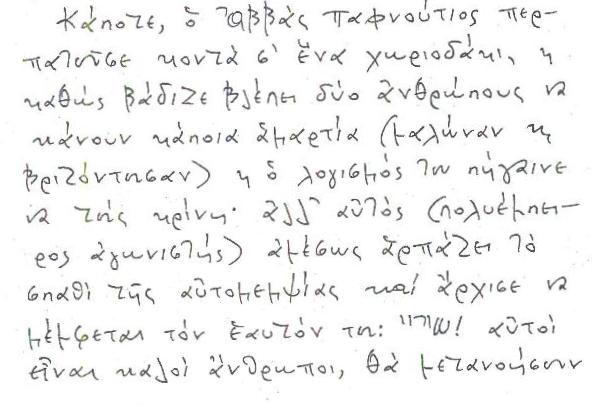 Κάποτε, ὁ Ἀββᾶς Παφνούτιος περ-
πατοῦσε κοντὰ σ' ἕνα χωριοδάκι, κ
καθὼς βάδιζε βλέπει δύο ἀνθρώπους νὰ
κάνουν κάποια ἁμαρτία (μαλώναν κ
βριζόντησαν) κ ὁ λογισμός του πήγαινε
νὰ τοὺς κρίνῃ· ἀλλ' αὐτὸς (πολυέμπει-
ρος ἀγωνιστής) ἀμέσως ἁρπάζει τὸ
σπαθὶ τῆς αὐτομεμψίας καί ἄρχισε νὰ
μέμφεται τὸν ἑαυτόν του: αὐτοὶ
εἶναι καλοὶ ἄνθρωποι, θὰ μετανοήσουν